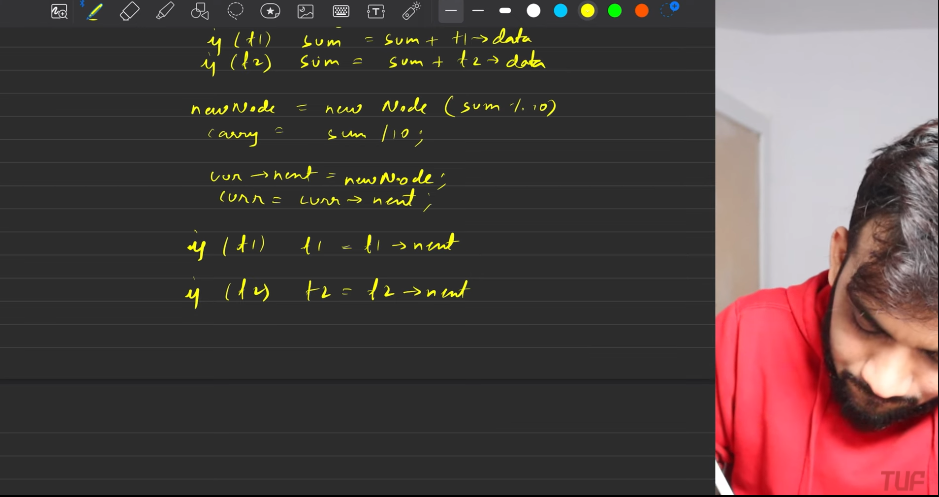 if (t1) sum = sum + t1→data
if (t2) sum = sum + t2→data
newNode = new Node (sum % 10)
carry = sum /10;
curr→next = newNode;
curr = curr→next;
if (t1) t1 = t1→next
if (t2) t2 = t2→next
TUF